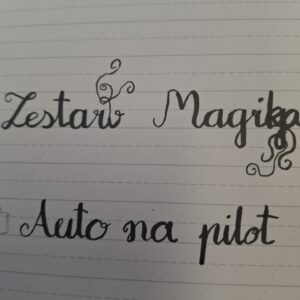 Zestaw Magika
Auto na pilot